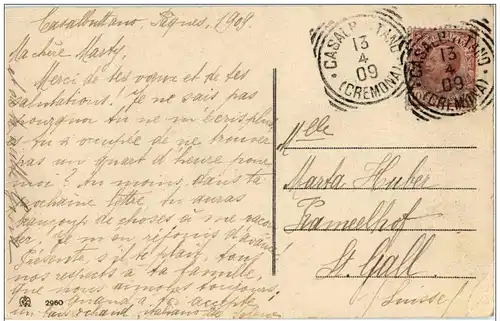 Casalbuttano, Pâques, 1909.
Ma chère Marty,
Merci de tes vœux et de tes
salutations! Je ne sais pas
pourquoi tu ne m'écris plus,
tu a occupée de ne trouver
pas un quart d'heure pour
moi? Au moins, dans ta
prochaine lettre, tu auras
beaucoups de choses à me racon-
ter. Je m'en réjouis d'avance.
Présente, s'il te plaît, tous
nos respects à ta famille,
que nous aimons toujours,
a toi accepte
un italiano de
2960
CASALBUTTANO
13
4
09
(CREMONA)
CASALBUTTANO
13
4
09
(CREMONA)
Mlle
Marta Huber
Kameelhof
St. Gall
Suisse!